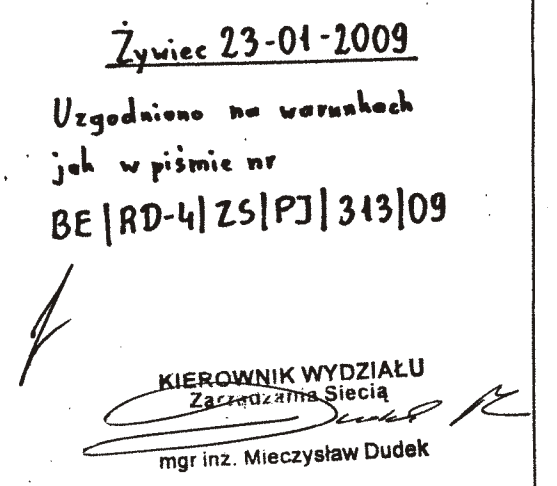 Żywiec 23-01-2009
Uzgodniono na warunkach
jak w piśmie nr
BE|RD-4|ZS|PJ|313|09
KIEROWNIK WYDZIAŁU
Zarządzania Siecią
Dudek
mgr inż. Mieczysław Dudek